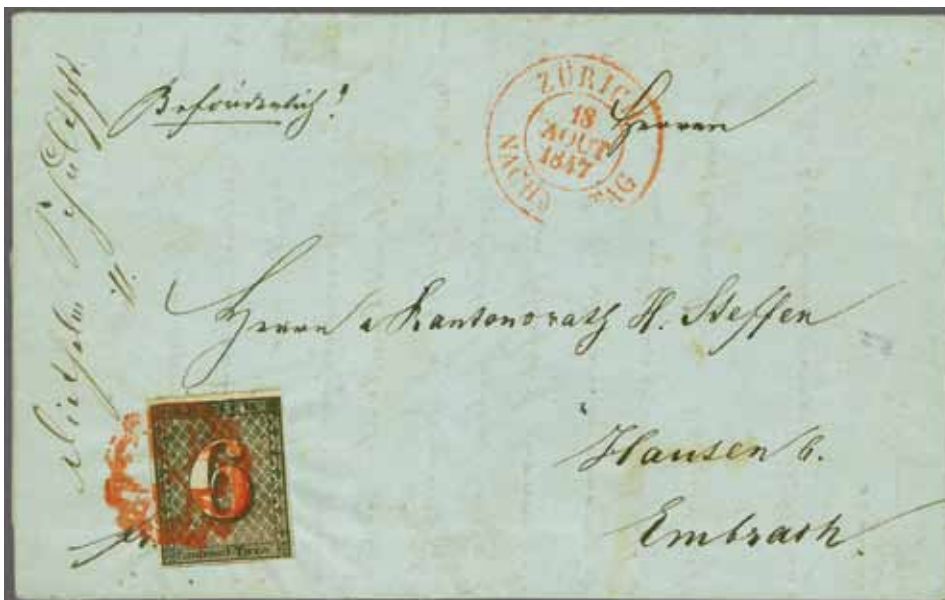 Beförderlich!
ZÜRICH
18
AOUT
1847
NACHM TAG
Herren
Herrn a Kantonsrath H. Steffen
Hausen b.
Embrach.
6
Cantonal-Taxe.